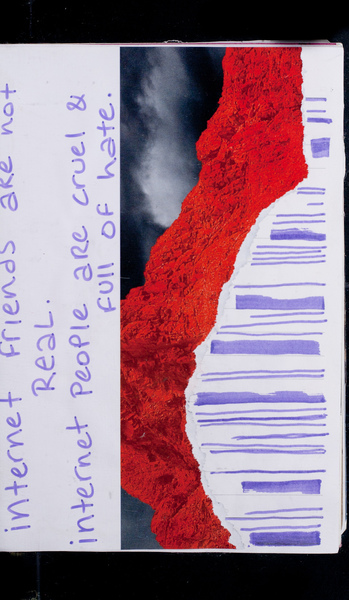 internet friends are not
Real.
internet People are cruel &
full of hate.